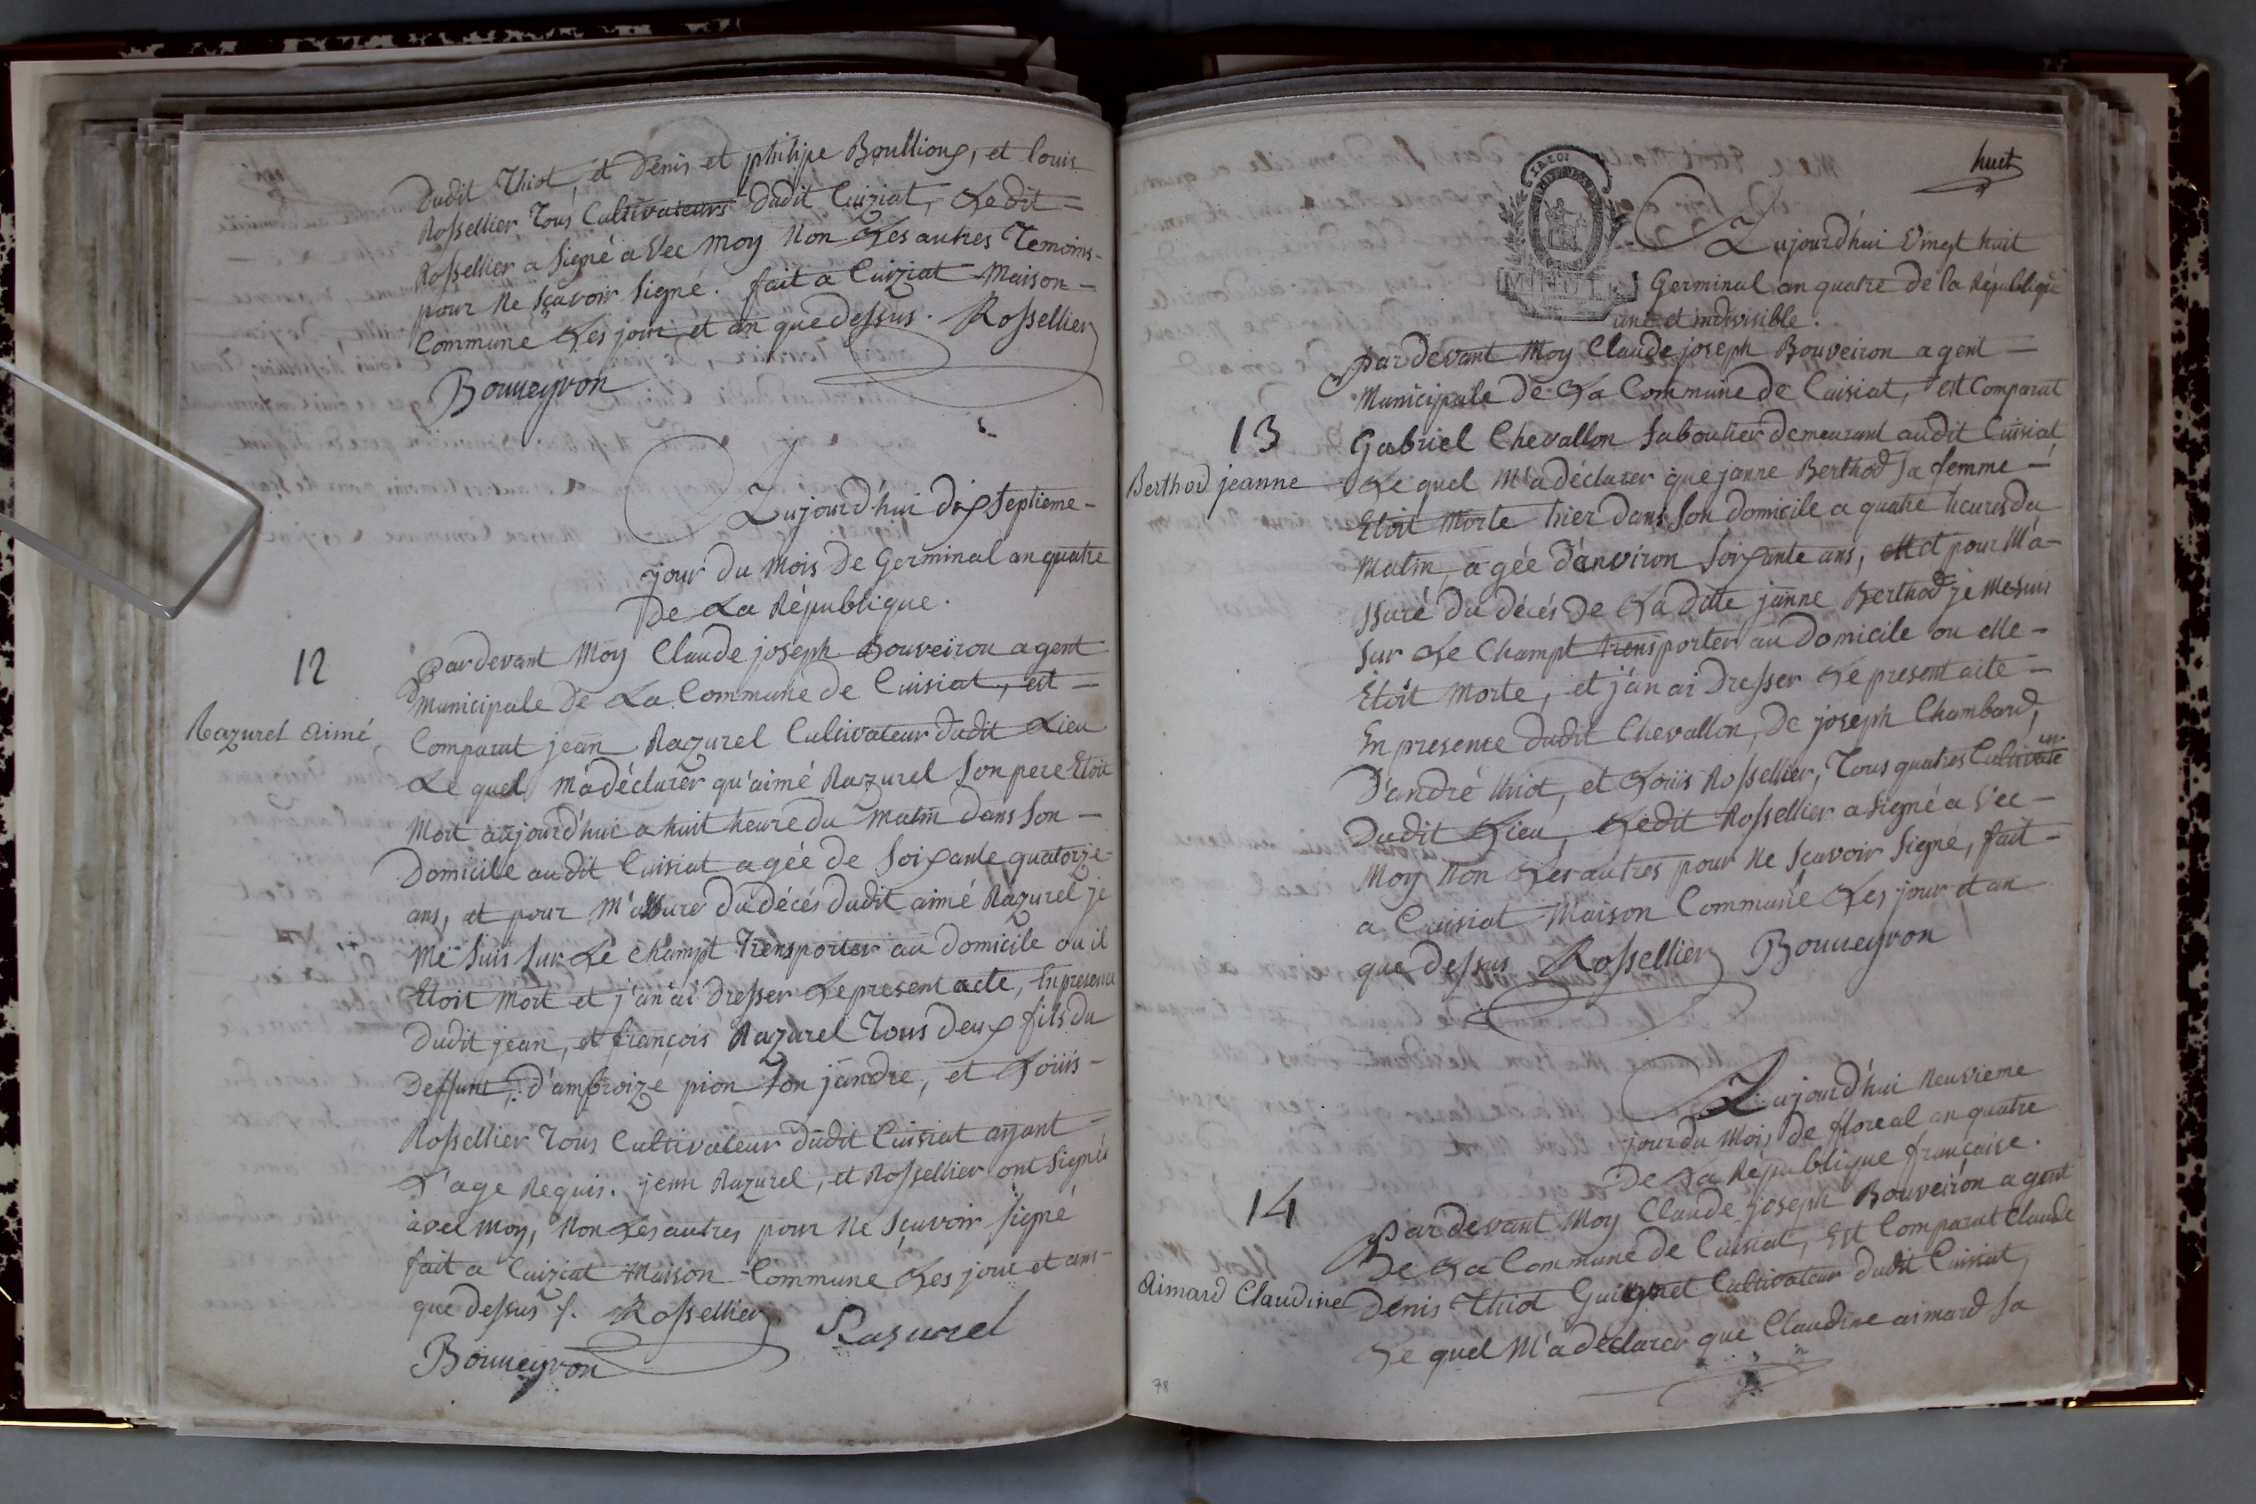 dudit Thiot, et Denis et philipe Boullioux, et louis
Rossellier Tous Cultivateurs dudit Cuiziat, Ledit =
Rossellier a Signé a Vec moy Non Les autres Temoins -
pour Ne sçavoir Signé. fait a Cuiziat Maison -
Commune Les jour, et an que dessus. Rossellier
Bouueyron
Aujourd'hui dix Septieme -
jour du Mois De Germinal an quatre
De La République.
12
par devant Moy Claude joseph Bouveiron agent
Municipale De La Commune de Cuisiat, est -
Razurel Aimé
Comparut jean Razurel Cultivateur dudit Lieu
Le quel M'a déclarer qu'aimé Razurel Son pere Etoit
Mort aujourd'hui a huit heure du Matin dans Son -
Domicile audit Cuisiat agée de Soixante quatorze
ans, et pour M'assuré du décés dudit aimé Razurel je
Me Suis Sur Le Champt Trensporter au Domicile ou il
Etoit Mort et j'an ai Dresser Le present acte, En presence
dudit jean, et françois Razurel Tous deux fils du
Deffunt, d'ambroize pion Son jandre, et Loüis -
Rossellier Tous Cultivateur dudit Cuisiat ayant =
L'age Requis. jean Razurel, et Rossellier ont Signés
avec Moy, Non Les autres pour Ne Sçavoir Signé
fait a Cuiziat Maison Commune Les jour et ans -
que dessus /. Rossellier Rasurel
Bouueyron
huet
Aujourd'hui Vingt huit
Germinal an quatre de la République
une et indivisible.
par devant Moy Claude joseph Bouveiron agent -
Municipale de La Commune de Cuisiat, est Comparut
13
Gabriel Chevallon Saboutier demeurant audit Cuisiat
Berthod jeanne
Le quel M'a déclarer que janne Berthod Sa femme -
Etoit Morte hier dans Son domicile a quatre heures du
Matin, agée d'anviron Soixante ans, et pour M'a-
ssuré du décés de La dite janne Berthod je Me suis
Sur Le Champt trensporter au domicile ou elle -
Etoit Morte, et j'an ai Dresser Le present acte -
En presence dudit Chevallon, De joseph Chambard,
D'andré thiot, et Loüis Rossellier, Tous quatres Cultivateur
Dudit Lieu, Ledit Rossellier a Signé a Vec -
Moy Non Les autres pour Ne Sçavoir Signé, fait -
a Cuisiat Maison Commune Les jour et an
que dessus Rossellier Bouueyron
Aujourd'hui Neuvieme
jour du Mois de floreal an quatre
De La République française.
14
Par devant Moy Claude joseph Bouveiron agent
De La Commune de Cuisiat, Est Comparut Claude
Aimard Claudine
Denis Thiot Cultivateur dudit Cuisiat,
Le quel M'a déclarer que Claudine aimard Sa
78